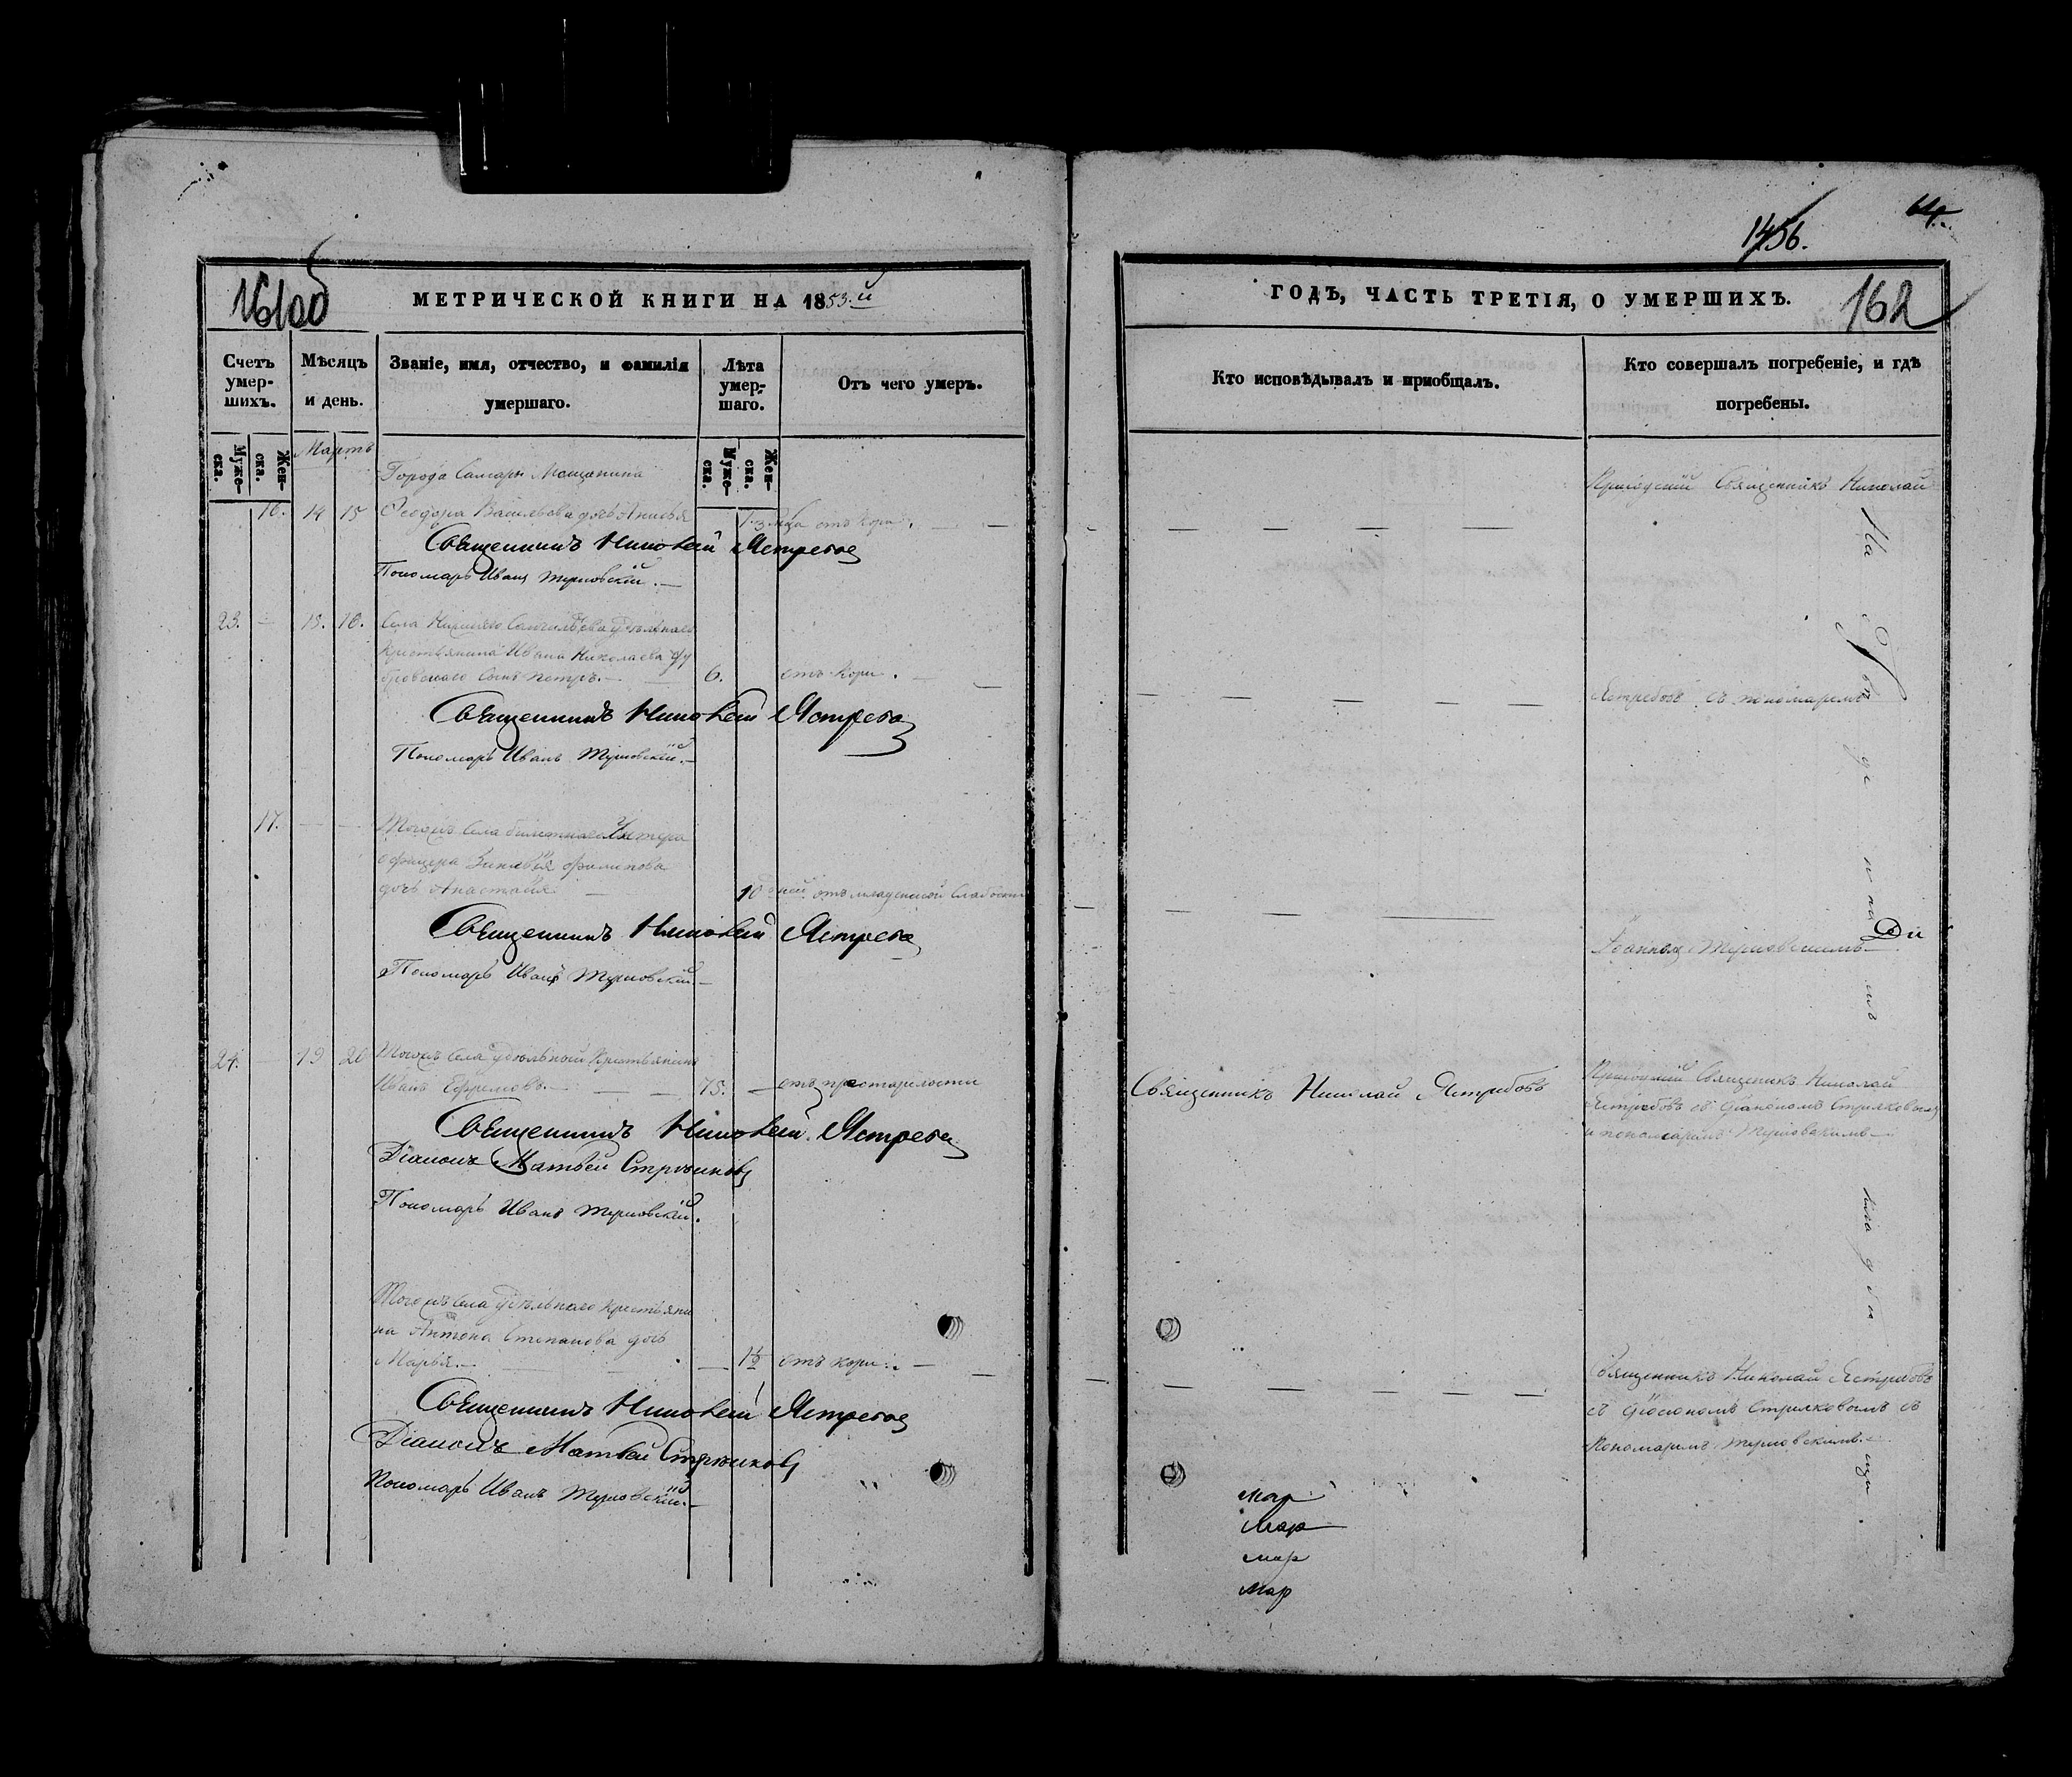 161об
МЕТРИЧЕСКОЙ КНИГИ НА 1853.й
Счетъ умер-шихъ.
Мѣсяцъ и день.
Званіе, имя, отчество, и фамилія умершаго.
Лѣта умер-шаго.
Отъ чего умеръ.
Муже-ска.
Жен-ска.
Муже-ска.
Жен-ска.
Мартъ
Города Самары Мещанина
16. 14 15 Ѳеодора Васильева дочь Анисья отъ кори.
Священникъ Николай Ястребов
Пономарь Иванъ Терновскій.—
23. — 15. 16. Села удѣльнаго
крестьянина Ивана Николаева Ду
бровскаго сынъ Петръ.— 6. отъ кори.
Священникъ Николай Ястребов
Пономарь Иванъ Терновскій.—
17. — — Тогожъ села билетнаго Унтера
офицера Зиновья Филипова
дочь Анастасія. 10 дней отъ младенской слабости
Священникъ Николай Ястребов
Пономарь Иванъ Терновскій.—
24. — 19 20 Тогожъ села удѣльный крестьянинъ
Иванъ Ефремовъ.— 75. — отъ престарелости
Священникъ Николай Ястребов
Діаконъ Матвей Стрелковъ
Пономарь Иванъ Терновскій.
Тогожъ села удѣльнаго крестьяни
на Антона Степанова дочь
Марья.— — 1½ отъ кори.
Священникъ Николай Ястребов
Діаконъ Матвей Стрелковъ
Пономарь Иванъ Терновскій.—
64.
1456.
162
ГОДЪ, ЧАСТЬ ТРЕТІЯ, О УМЕРШИХЪ.
Кто исповѣдывалъ и пріобщалъ.
Кто совершалъ погребеніе, и гдѣ погребены.
Приходскій Священникъ Николай
Ястребовъ съ пономаремъ
Іоанномъ Терновскимъ—
Ди
Священникъ Николай Ястребовъ
Приходскій Священникъ Николай
Ястребовъ съ діакономъ Стрелковымъ
и пономаремъ Терновскимъ—
Священникъ Николай Ястребовъ
съ діакономъ Стрелковымъ съ
Пономаремъ Терновскимъ.—
На
кладби
щи
мар
мар
мар
мар